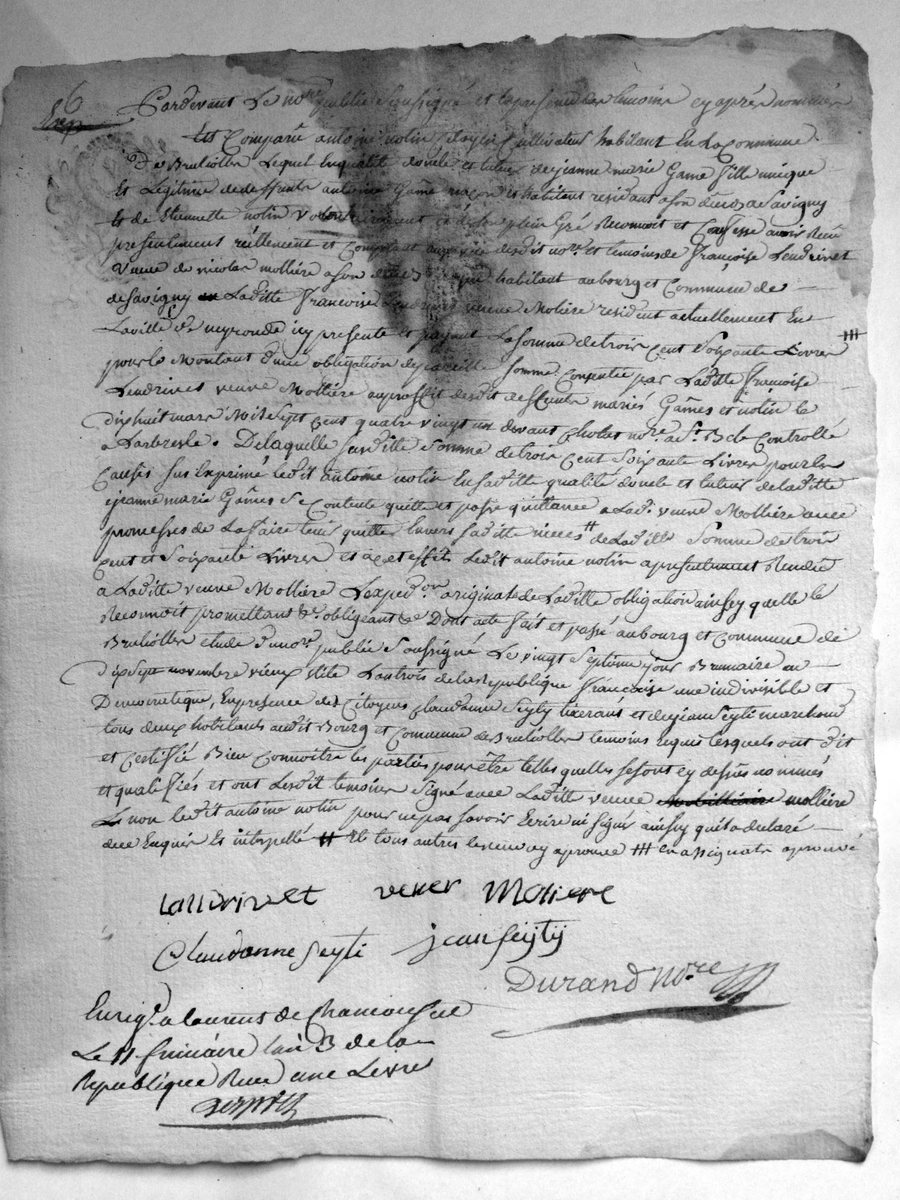 6
Exp.
Pardevant Le nore public Soussigné et En presence des temoins cy après nommés
Est Comparu antoine notin cultivateur habitant En La Commune
De Brulioller Lequel En qualité d'oncle et tuteur de jeanne marie Game fille unique
Et Legitime de deffunts antoine Game maçon habitant residant a son deces a Savigny
et de Etiennette notin volontairement et de Son plein Gré Reconnoit et Confesse avoir Reçu
presentement réellement et Comptant aux vûe desdit nore. et temoins de françoise Lendrivet
veuve de nicolas mollière a son deces habitant au bourg et Commune de
de Savigny Laditte francoise Lendrivet veuve Moliere resident actuellement En
La ville de neyronde icy presente et payant La Somme de trois Cent Soixante Livres ##
pour le Montant d'une obligation de pareille Somme Consentie par Laditte françoise
Lendrivet veuve Mollière au proffit desdit deffunts mariés Gâmes et notin le
Dix huit mars Mil Sept Cent quatre vingt un devant Cholet nore. a St. B Controllé
a Larbresle. De laquelle Susditte Somme de trois Cent Soixante Livres pour les
Causes Sus Exprimé ledit antoine notin En Saditte qualité d'oncle et tuteur de laditte
jeanne marie Gâmes Se Contente quitte et passe quittance a Lad. veuve Mollière avec
promesses de La faire tenir quitte Envers Saditte niece # de Laditte Somme de trois
Cent et Soixante Livres et a cet effet Ledit antoine notin a presentement Rendu
a Laditte veuve Mollière Lexpedon. originale de Laditte obligation ainsy quelle le
Reconnoit promettant &c obligeant &c Dont acte fait et passé au bourg et Commune de
Brulioller etude du nore. public Soussigné Le vingt Septieme jour Brumaire ou
Dix Sept novembre vieux Stile Lan trois de la Republique françoise une indivisible et
Democratique, En presence des Citoyens Claudanne Seyty tixerand et de jean Seyti marchand
tous deux habitants audit Bourg et Commune de Brulioller temoins requis lesquels ont dit
et Certiffié Bien Connoitre les parties pour être telles quelles Se sont cy dessus nommés
et qualiffiés et ont Lesdit temoins Signé avec Laditte veuve mollière
non ledit antoine notin pour ne pas Savoir Ecrire ni Signer ainsy qu'il a declaré
de ce Enquis Et interpellé # Et tous autres approuvé ## en assignats aprouvé
Landrivet veuer Moliere
Claudanne Seyti jean Seyty
Durand Nore
Enrigé. a Laurent de Chamousset
Le 11 frimaire lan 3 de la
Republique Reçu une Livre